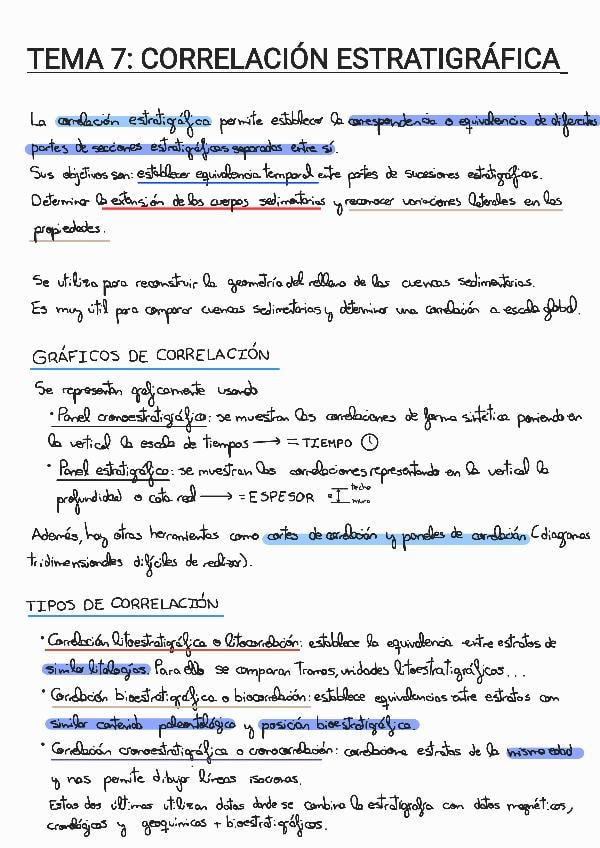 TEMA 7: CORRELACIÓN ESTRATIGRÁFICA
La correlación estratigráfica permite establecer la correspondencia o equivalencia de diferentes
partes de secciones estratigráficas separadas entre sí.
Sus objetivos son: establecer equivalencia temporal entre partes de sucesiones estratigráficas.
Determinar la extensión de los cuerpos sedimentarios y reconocer variaciones laterales en las
propiedades.
Se utiliza para reconstruir la geometría del relleno de las cuencas sedimentarias.
Es muy útil para comparar cuencas sedimentarias y determinar una correlación a escala global.
GRÁFICOS DE CORRELACIÓN
Se representan gráficamente usando
• Panel cronoestratigráfico: se muestran las correlaciones de forma sintética poniendo en
la vertical la escala de tiempos → = TIEMPO
• Panel estratigráfico: se muestran las correlaciones representando en la vertical la
profundidad o cota real → = ESPESOR = techo
muro
Además, hay otras herramientas como cortes de correlación y paneles de correlación (diagramas
tridimensionales difíciles de realizar).
TIPOS DE CORRELACIÓN
• Correlación litoestratigráfica o litocorrelación: establece la equivalencia entre estratos de
similar litologías. Para ello se comparan Tramos, unidades litoestratigráficas...
• Correlación bioestratigráfica o biocorrelación: establece equivalencias entre estratos con
similar contenido paleontológico y posición bioestratigráfica.
• Correlación cronoestratigráfica o cronocorrelación: correlaciona estratos de la misma edad
y nos permite dibujar líneas isocronas.
Estas dos últimas utilizan datos donde se combina la estratigrafía con datos magnéticos,
cronológicos y geoquímicos + bioestratigráficos.